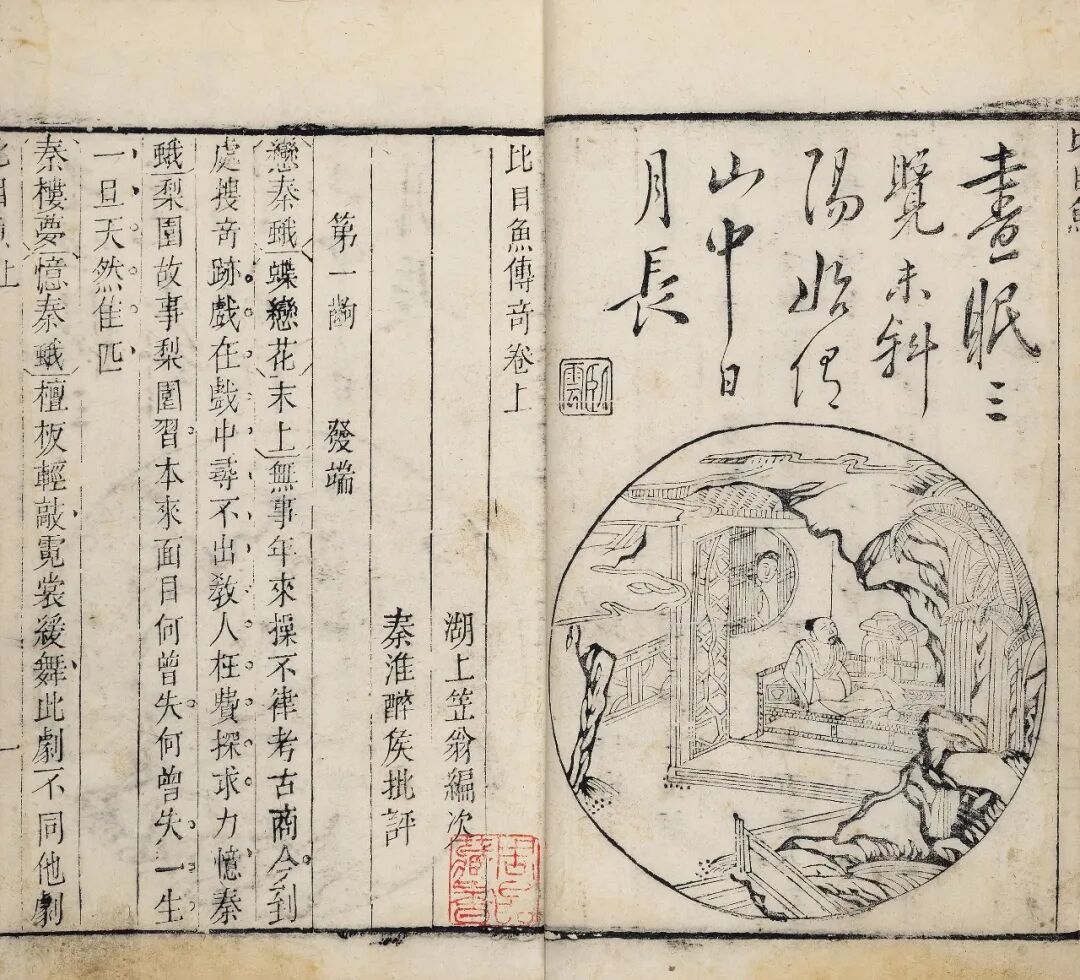 比目魚
晝眠三
覺未斜
陽始信
山中日
月長
臥雲
比目魚傳竒卷上
湖上笠翁編次
秦淮醉侯批評
第一齣　發端
戀秦蛾蝶戀花末上無事年來操不律考古商今到
處搜竒跡戲在戲中尋不出教人枉費探求力憶秦
蛾梨園故事梨園習本來面目何曾失何曾失一生
一旦天然佳匹
秦樓夢憶秦蛾檀板輕敲霓裳緩舞此劇不同他劇
比目魚上　一